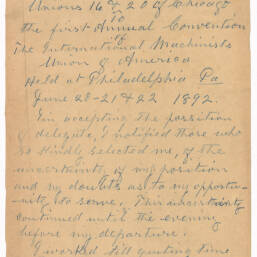 Unions 16 & 20 of Chicago
To
the first Annual Convention
of
The International Machinists
Union of America
Held at Philadelphia Pa
June 20-21 & 22 1892.
In accepting the possition
of delegate, I notified those who
so kindly selected me, of the
uncertainty of my position
and my doubts as to my opportu-
nity to serve. This uncertainty
continued until the evening
before my departure.
I worked till quiting time